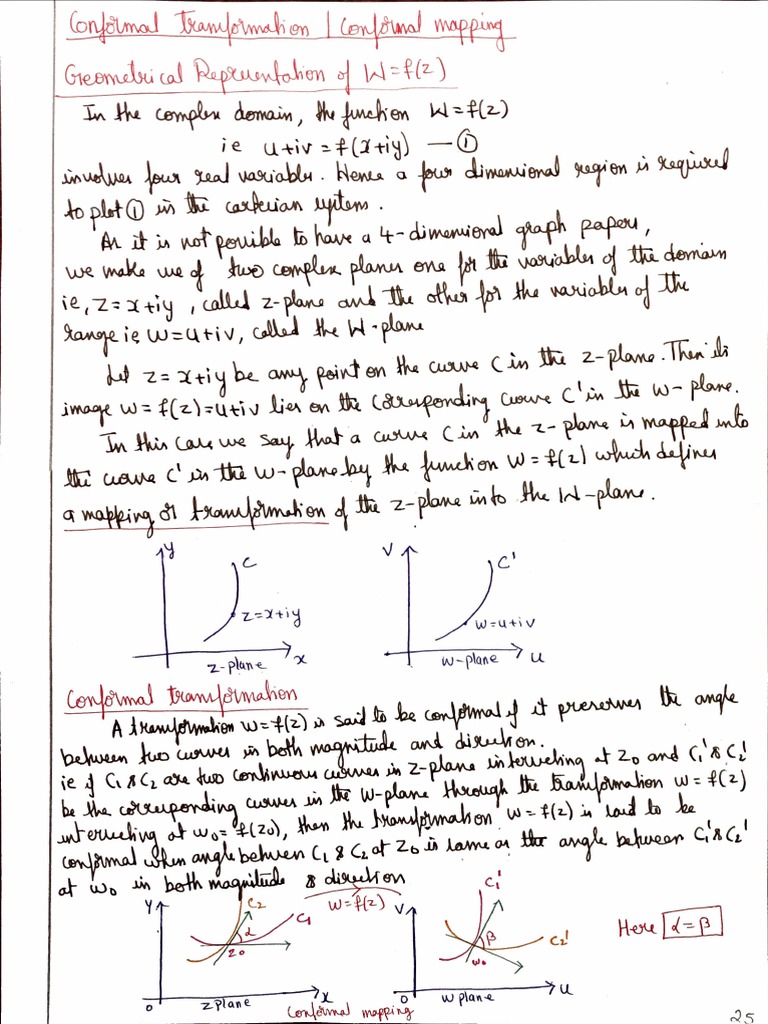 Conformal transformation / Conformal mapping
Geometrical Representation of W=f(z)
In the complex domain, the function W=f(z)
ie u+iv = f(x+iy) — ①
involves four real variables. Hence a four dimensional region is required
to plot ① in the cartesian system.
As it is not possible to have a 4-dimensional graph papers,
we make use of two complex planes one for the variables of the domain
ie, z=x+iy, called z-plane and the other for the variables of the
range ie w=u+iv, called the W-plane
Let z=x+iy be any point on the curve C in the z-plane. Then its
image w=f(z)=u+iv lies on the corresponding curve C' in the w-plane.
In this case we say that a curve C in the z-plane is mapped into
the curve C' in the w-plane by the function W=f(z) which defines
a mapping or transformation of the z-plane into the W-plane.
y C z=x+iy x z-plane
V C' w=u+iv u w-plane
Conformal transformation
A transformation w=f(z) is said to be conformal if it preserves the angle
between two curves in both magnitude and direction.
ie if C1 & C2 are two continuous curves in z-plane intersecting at z0 and C1' & C2'
be the corresponding curves in the W-plane through the transformation w=f(z)
intersecting at w0=f(z0), then the transformation w=f(z) is said to be
conformal when angle between C1 & C2 at z0 is same as the angle between C1' & C2'
at w0 in both magnitude & direction
Y C2 C1 α z0 0 x z plane
W=f(z)
V C1' β C2' w0 0 u w plane
Here α=β
Conformal mapping
25